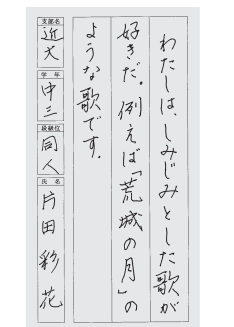 わたしは、しみじみとした歌が
好きだ。例えば「荒城の月」の
ような歌です。
支部名
近大
学年
中三
段級位
同人
氏名
片田彩花